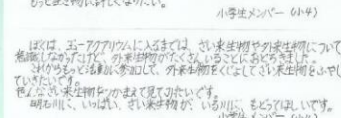 もっと生き物に詳しくなりたい。
小学生メンバー（小4）
ぼくは、玉一アクアリウムに入るまでは、ざい来生物や外来生物について
意識しなかったけど、外来生物がたくさんいることにおどろきました。
これからもっと活動に参加して、外来生物をへらしてざい来生物をふやし
ていきたいです。
色んなざい来生物をつかまえて見てみたいです。
明石川に、いっぱい、ざい来生物が、いる川に、もどってほしいです。
小学生メンバー（小4）